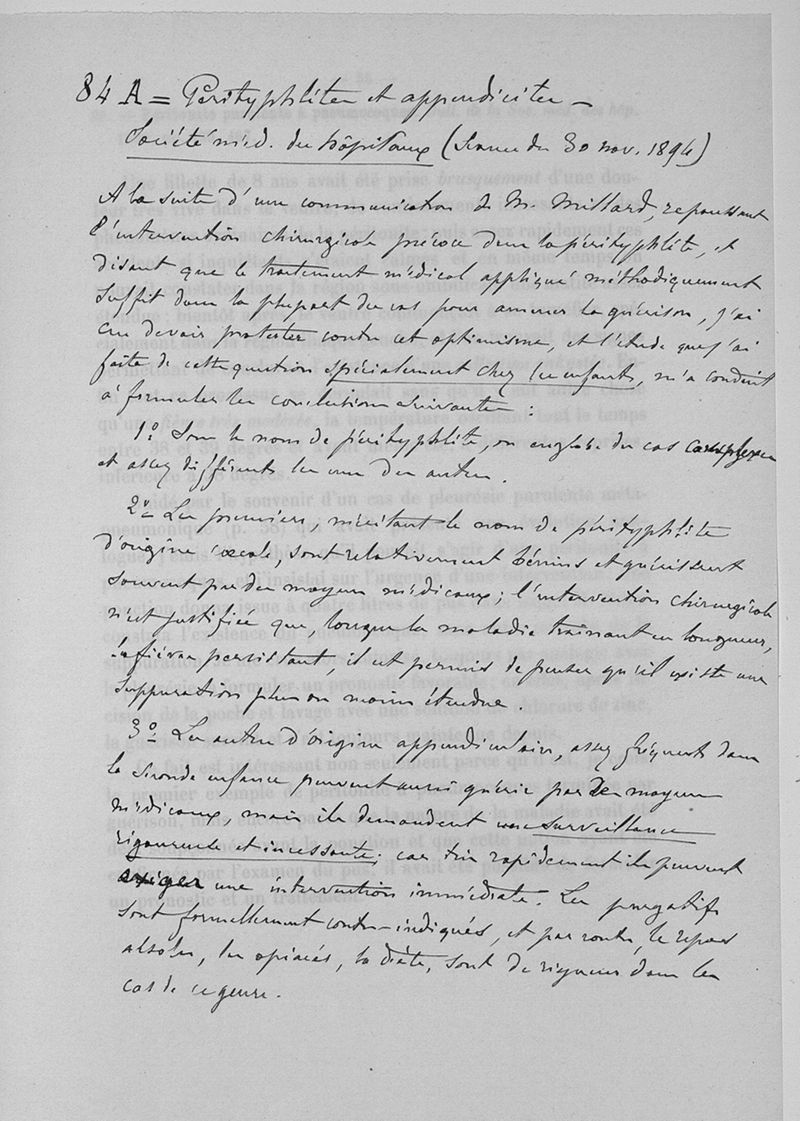 84 A = Pérityphlites et appendicites —
Société méd. des hôpitaux (Séance du 30 nov. 1894)
A la suite d'une communication de M. Millard, repoussant
l'intervention chirurgicale précoce dans la pérityphlite, et
disant que le traitement médical appliqué méthodiquement
suffit dans la plupart des cas pour amener la guérison, j'ai
cru devoir protester contre cet optimisme, et l'étude que j'ai
faite de cette question spécialement chez les enfants, m'a conduit
à formuler les conclusions suivantes :
1º Sous le nom de pérityphlite, on englobe des cas complexes
et assez différents les uns des autres.
2º Les premiers, méritant le nom de pérityphlite
d'origine cæcale, sont relativement bénins et guérissent
souvent par des moyens médicaux ; l'intervention chirurgicale
n'est justifiée que, lorsque la maladie traînant en longueur,
la fièvre persistant, il est permis de penser qu'il existe une
suppuration plus ou moins étendue.
3º Les autres d'origine appendiculaire, assez fréquents dans
la seconde enfance peuvent aussi guérir par des moyens
médicaux, mais ils demandent une surveillance
rigoureuse et incessante ; car très rapidement ils peuvent
exiger une intervention immédiate. Les purgatifs
sont formellement contre-indiqués, et par contre, le repos
absolu, les opiacés, la diète, sont de rigueur dans les
cas de ce genre.